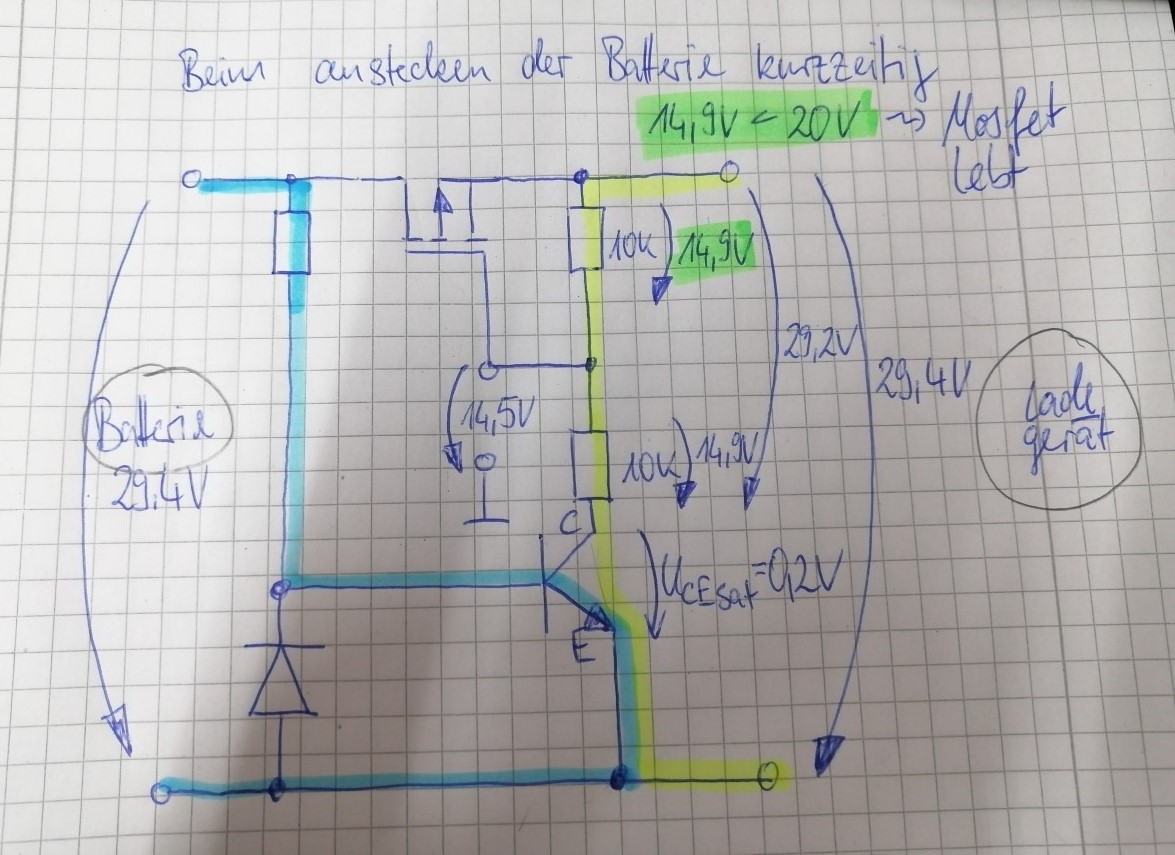 Beim anstecken der Batterie kurzzeitig
14,9V < 20V → Mosfet
lebt
10K 14,9V
29,2V
29,4V
Lade
gerät
Batterie
29,4V
14,5V
10K 14,9V
C
UCEsat=0,2V
E